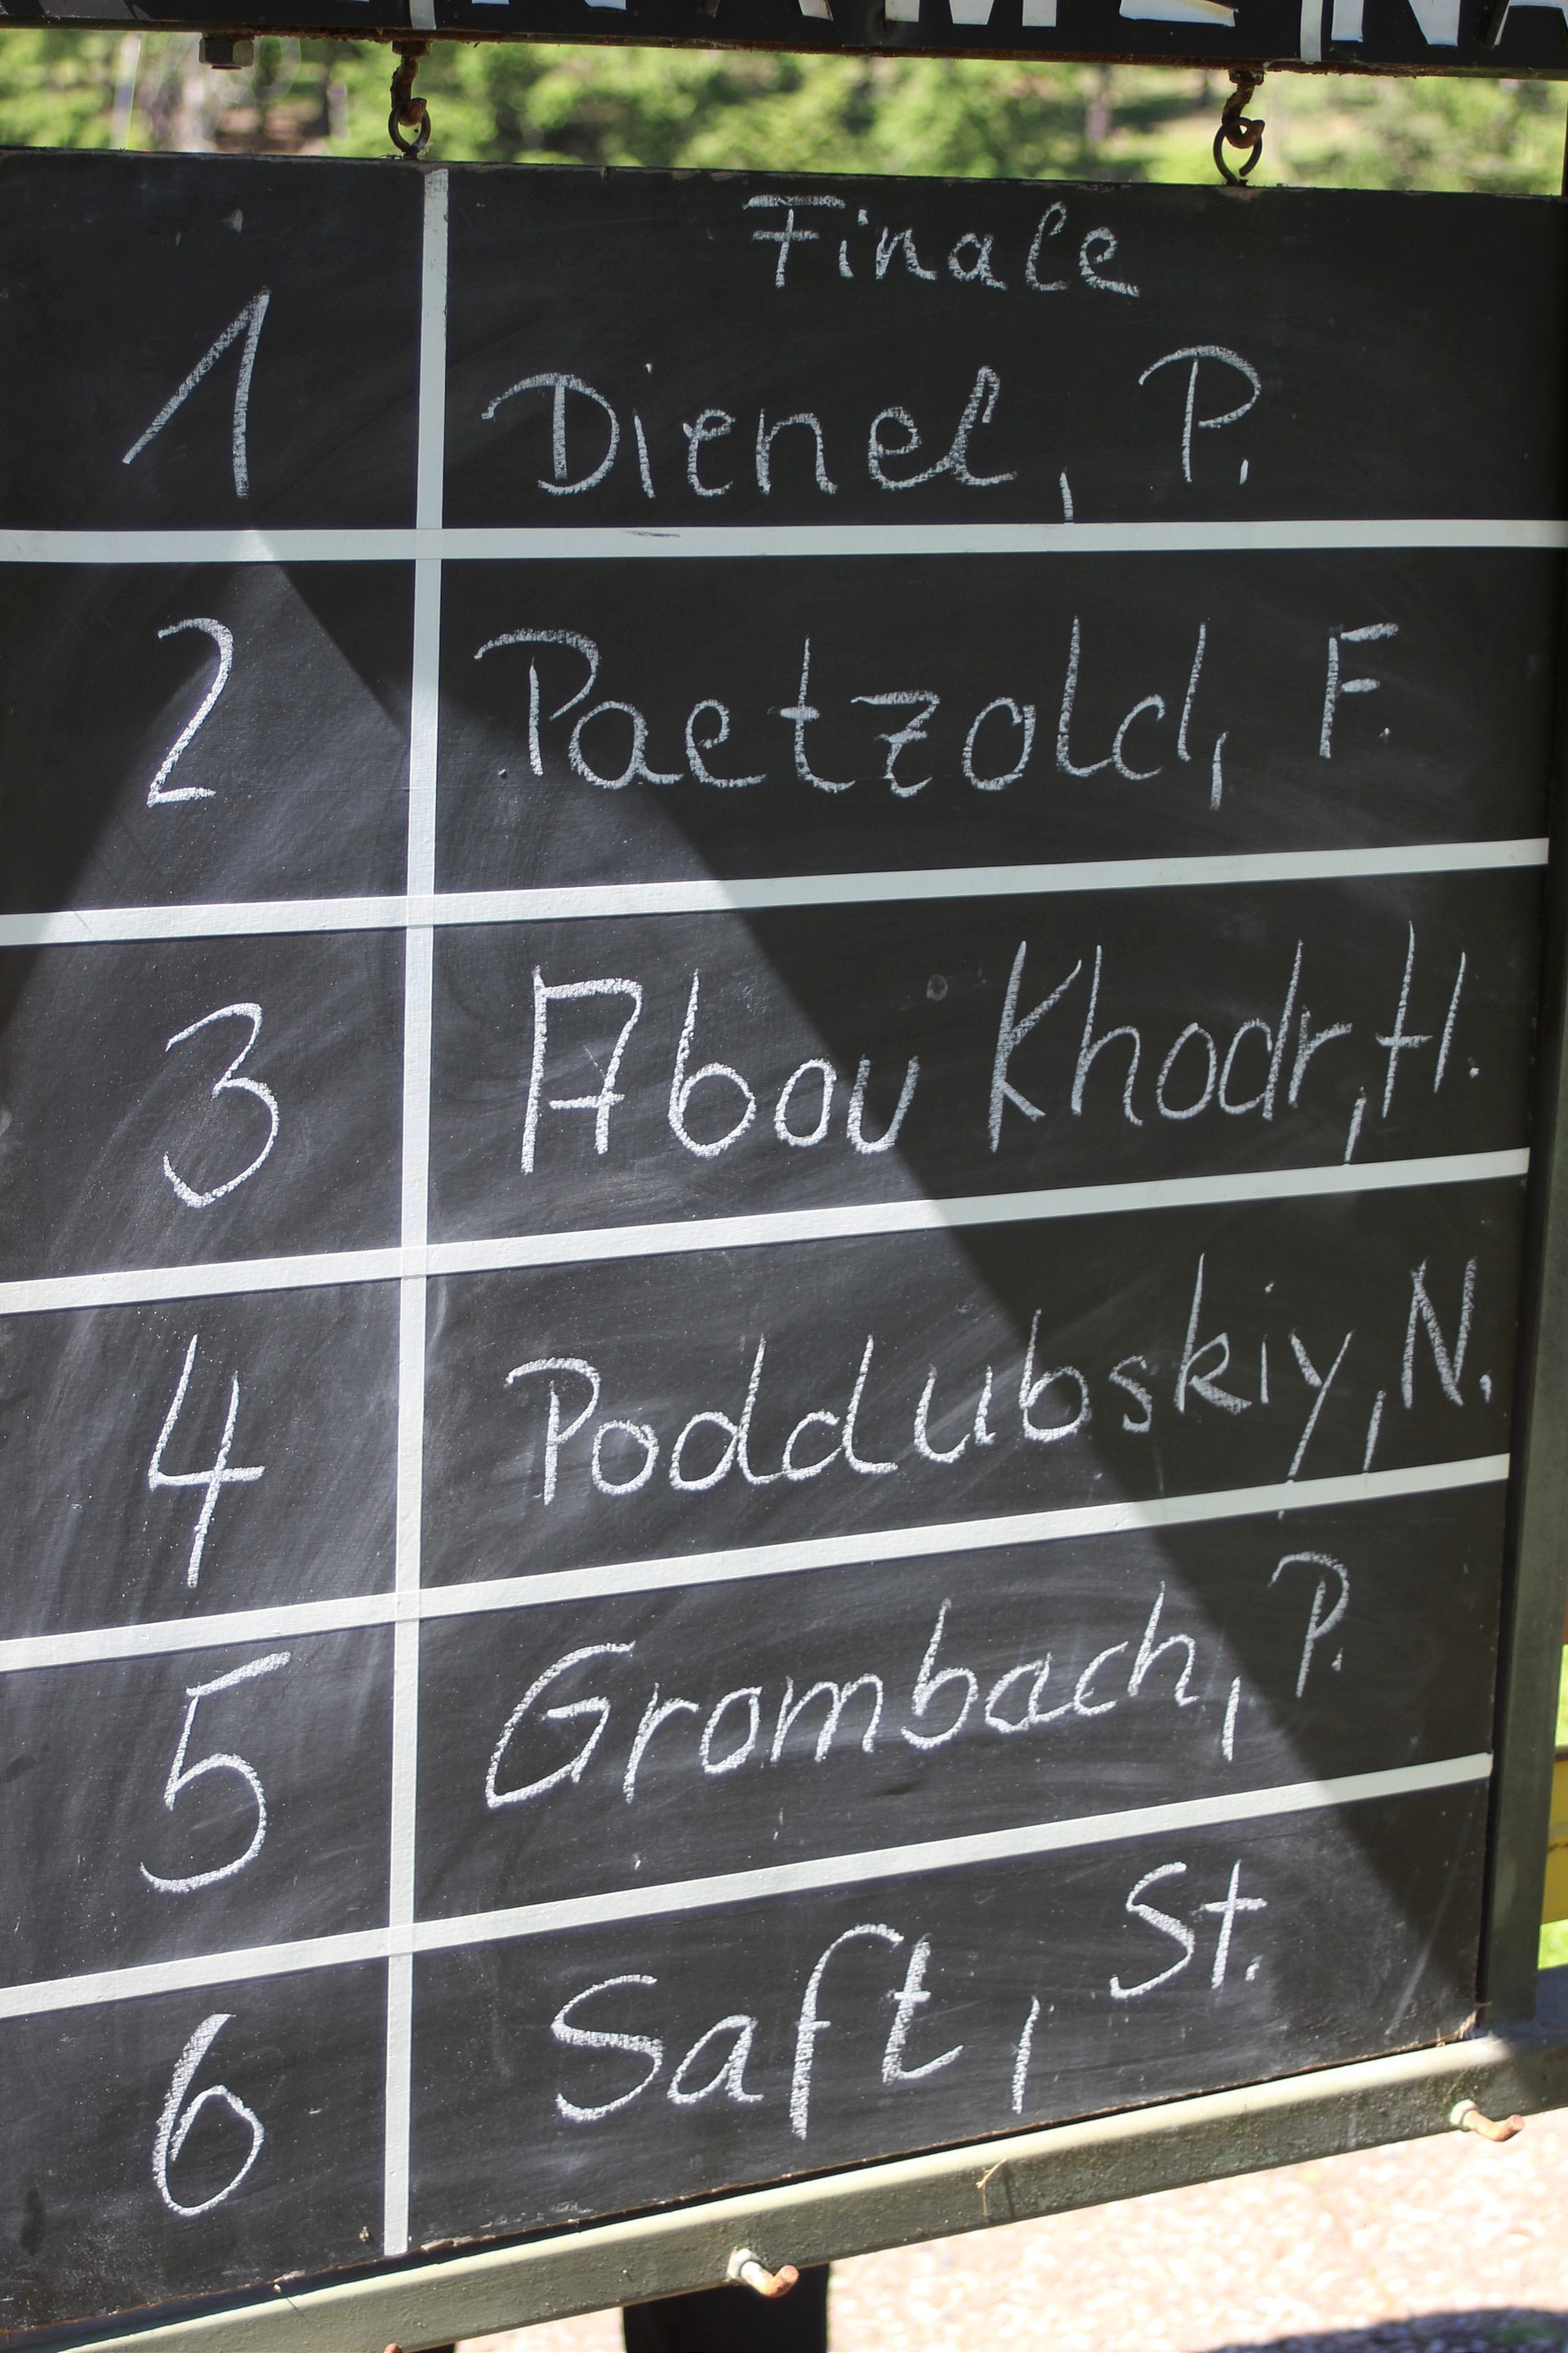 Finale
1 Dienel, P.
2 Paetzold, F.
3 Abou Khodr, H.
4 Poddubskiy, N.
5 Grombach, P.
6 Saft, St.